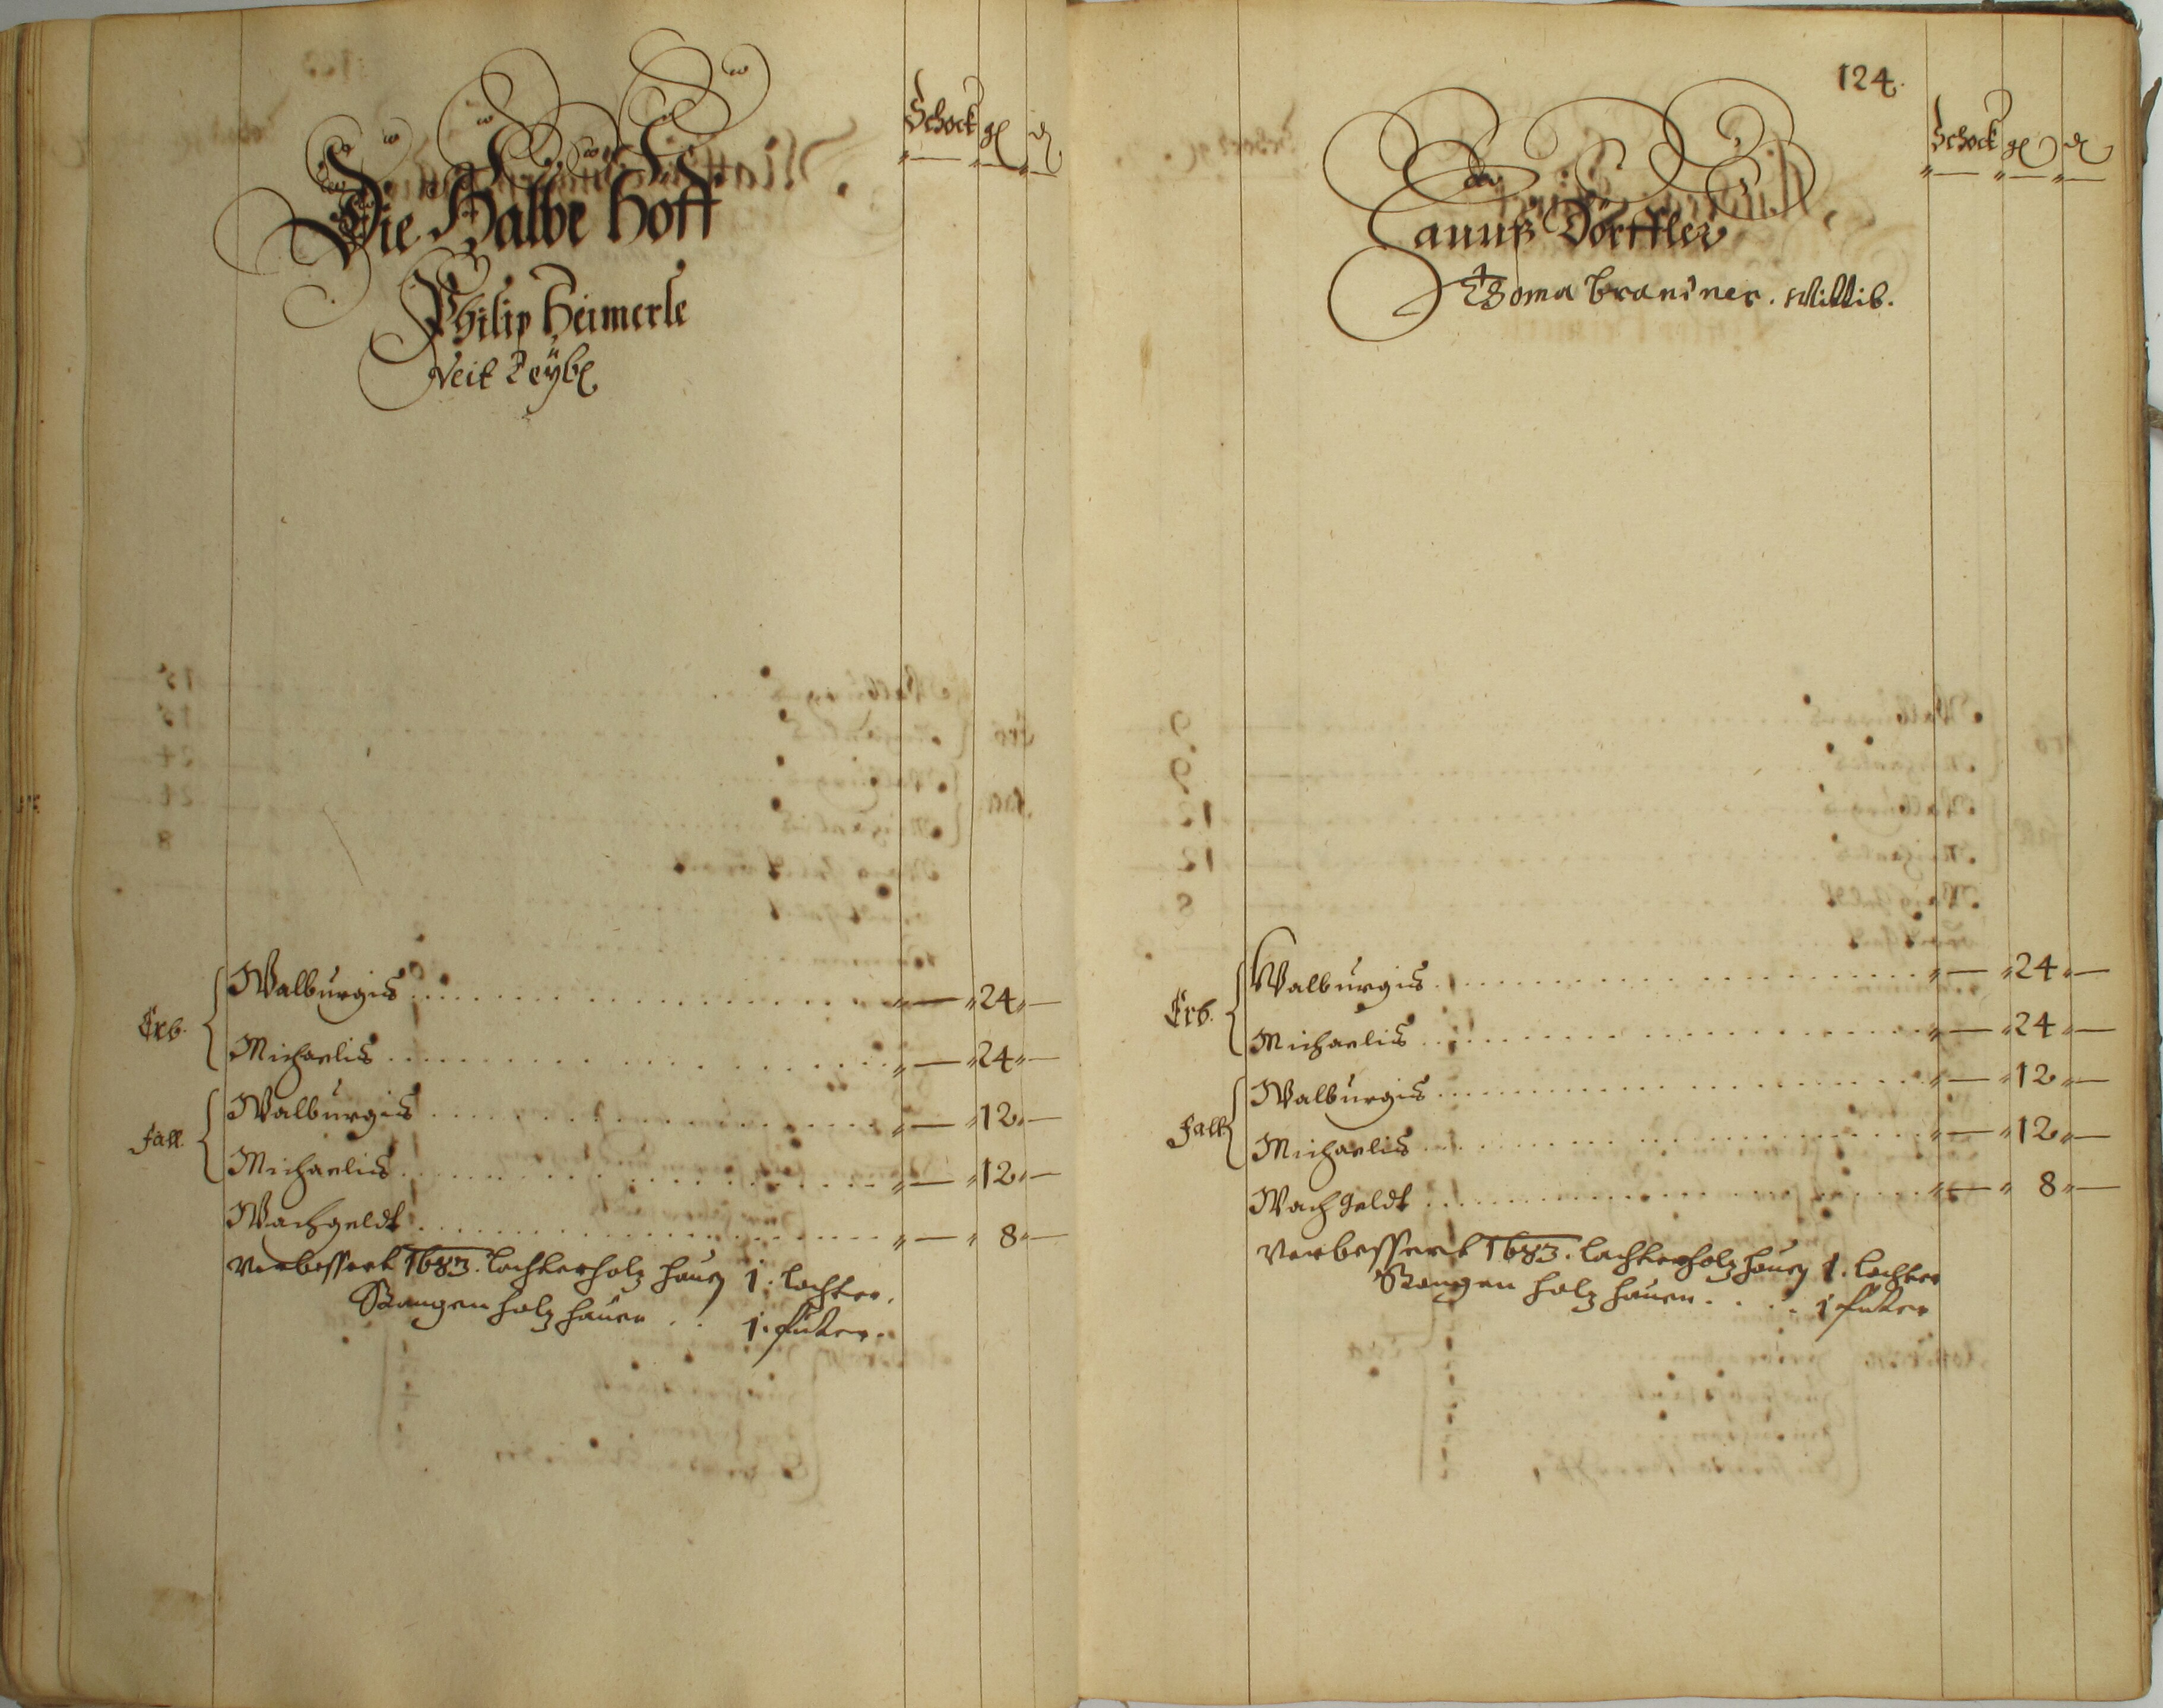 Schock gl d
Die Halbe Hoff
Philip Heimerle
Veit
Erb. Walburgis 24
Michaelis 24
Fall. Walburgis 12
Michaelis 12
Wachgeldt 8
Verbessert 1683. Lachterholz hauen 1. Lachter.
Stangen holz hauen .. 1. fuder.
124.
Schock gl d
Hannß Dörffler
Thoma Brandner. Wittib.
Erb. Walburgis 24
Michaelis 24
Fall Walburgis 12
Michaelis 12
Wachgeldt 8
Verbessert 1683. Lachterholz hauen 1. Lachter
Stangen holz hauen .... 1 fuder